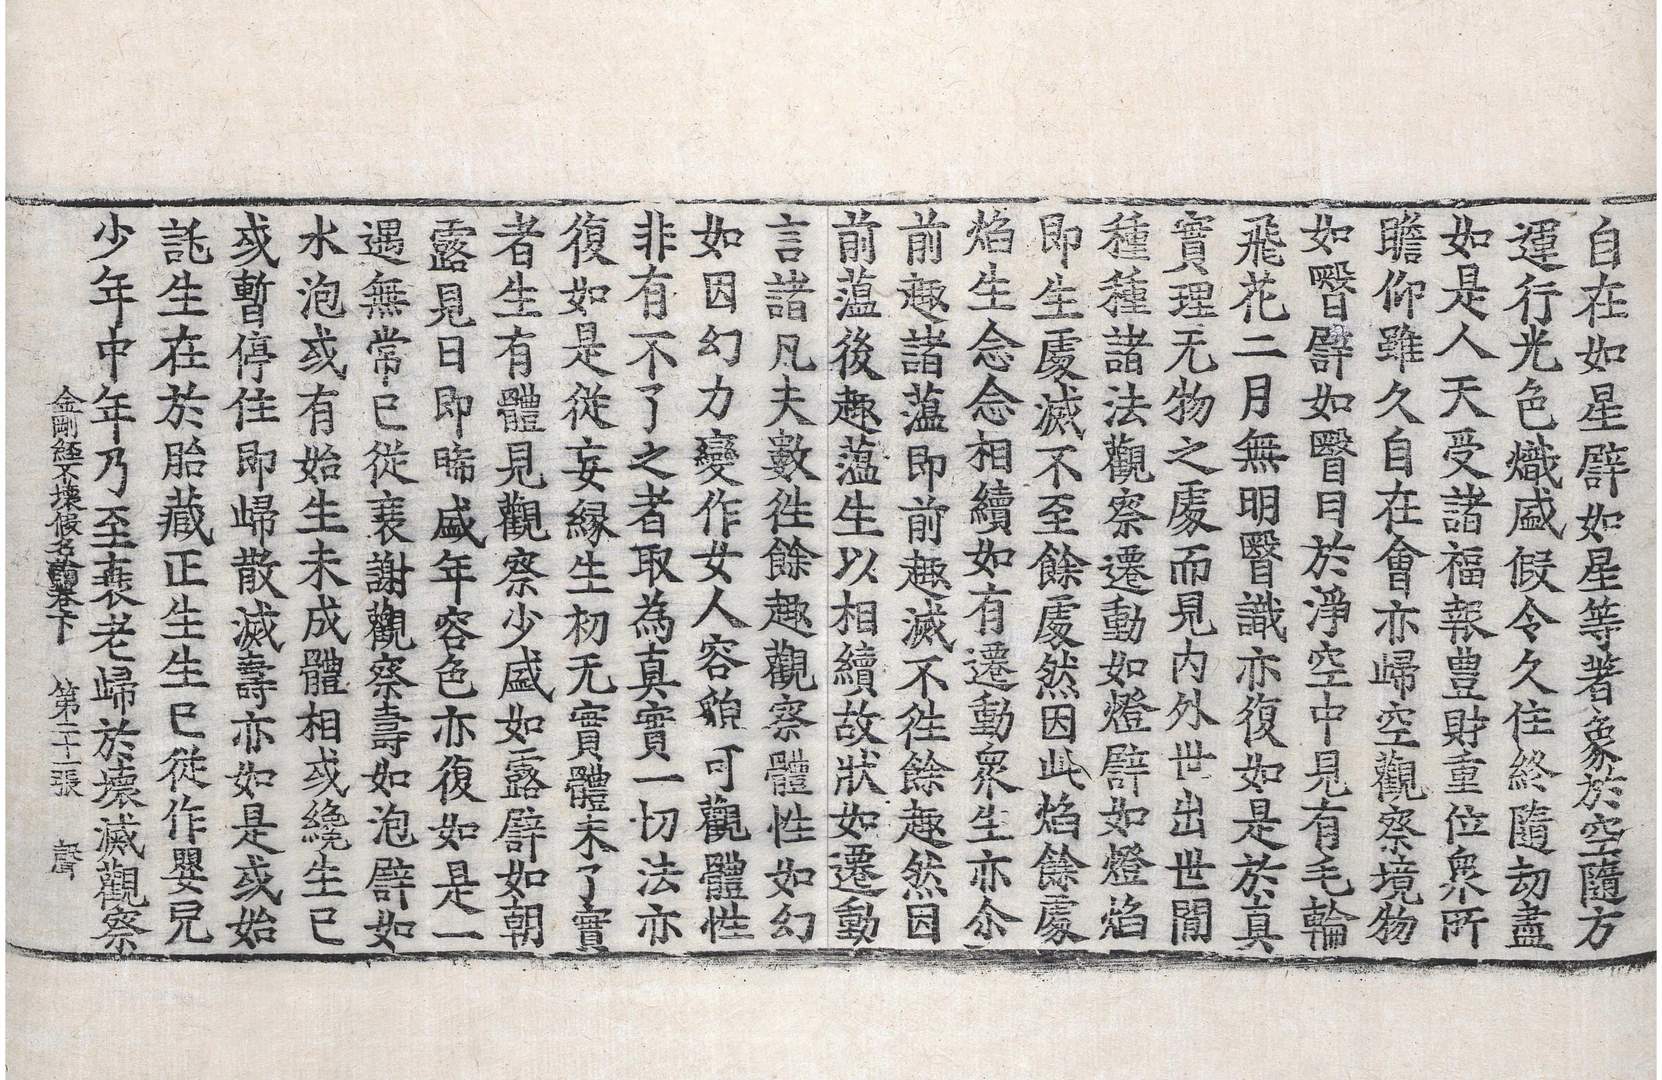 自在如星譬如星等著象於空隨方
運行光色熾盛假令久住終隨劫盡
如是人天受諸福報豊財重位衆所
瞻仰雖久自在會亦歸空觀察境物
如瞖譬如瞖目於淨空中見有毛輪
飛花二月無明瞖識亦復如是於真
實理无物之處而見内外世出世間
種種諸法觀察遷動如燈譬如燈焰
即生處滅不至餘處然因此焰餘處
焰生念念相續如有遷動衆生亦尒
前趣諸藴即前趣滅不徃餘趣然因
前藴後趣藴生以相續故狀如遷動
言諸凡夫數徃餘趣觀察體性如幻
如因幻力變作女人容貌可觀體性
非有不了之者取為真實一切法亦
復如是從妄緣生初无實體未了實
者生有體見觀察少盛如露譬如朝
露見日即晞盛年容色亦復如是一
遇無常已從衰謝觀察壽如泡譬如
水泡或有始生未成體相或纔生已
或暫停住即歸散滅壽亦如是或始
託生在於胎藏正生生已從作嬰兒
少年中年乃至衰老歸於壞滅觀察
金剛經不壞假名論卷下 第二十二張 聲